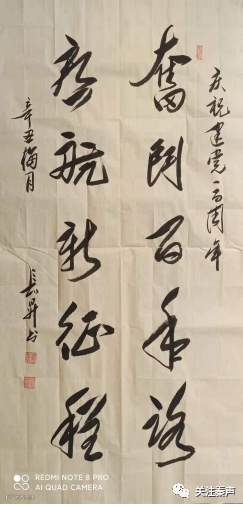 庆祝建党一百周年
奮鬥百年路
启航新征程
辛丑梅月
長昇书
REDMI NOTE 8 PRO
AI QUAD CAMERA
关注秦声